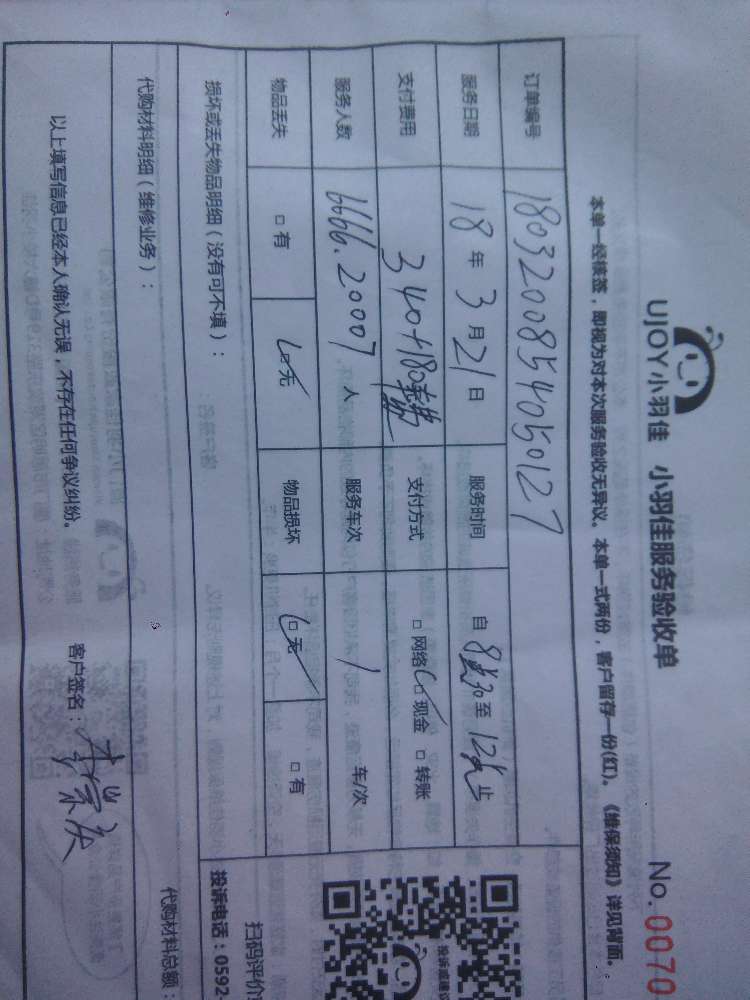 UJOY小羽佳 小羽佳服务验收单 No. 0070
本单一经核签，即视为对本次服务验收无异议。本单一式两份，客户留存一份(红)。《维保须知》详见背面。
订单编号 1803200854050127
服务日期 18 年 3 月 21 日 服务时间 自 8 30 至 12 止
支付费用 340+180 支付方式 □ 网络 □ 现金 □ 转账
服务人数 6666.20007 人 服务车次 1 车/次
物品丢失 □ 有 □ 无 物品损坏 □ 无 □ 有
损坏或丢失物品明细（没有可不填）：
投诉电话：0592
扫码评价
代购材料明细（维修业务）：
代购材料总额：
以上填写信息已经本人确认无误，不存在任何争议纠纷。 客户签名：